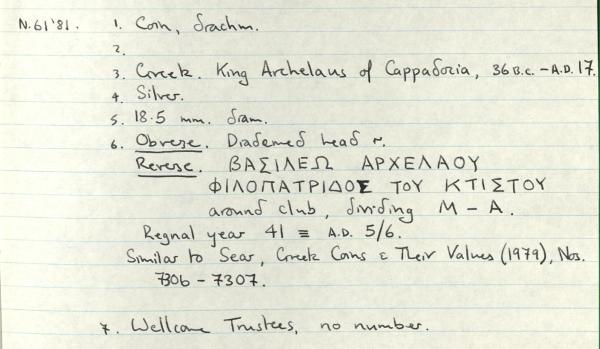 N.61'81. 1. Coin, drachm.
2.
3. Greek. King Archelaus of Cappadocia, 36 B.C. – A.D. 17.
4. Silver.
5. 18.5 mm. diam.
6. Obverse. Diademed head r.
Reverse. ΒΑΣΙΛΕΩ ΑΡΧΕΛΑΟΥ
ΦΙΛΟΠΑΤΡΙΔΟΣ ΤΟΥ ΚΤΙΣΤΟΥ
around club, dividing M – A.
Regnal year 41 ≡ A.D. 5/6.
Similar to Sear, Greek Coins & Their Values (1979), Nos.
7306 – 7307.
7. Wellcome Trustees, no number.